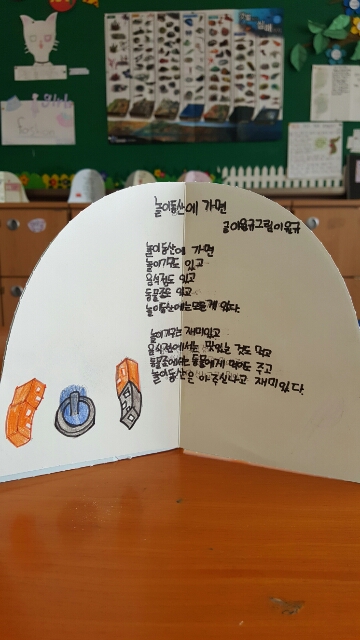 놀이동산에 가면
글이윤규그림이윤규
놀이동산에 가면
놀이기구도 있고
음식점도 있고
동물원도 있고
놀이동산에는모든게 있다.
놀이기구는 재미있고
음식점에서는 맛있는 것도 먹고
동물원에서는 동물에게 먹이도 주고
놀이동산은 아주신나고 재미있다.